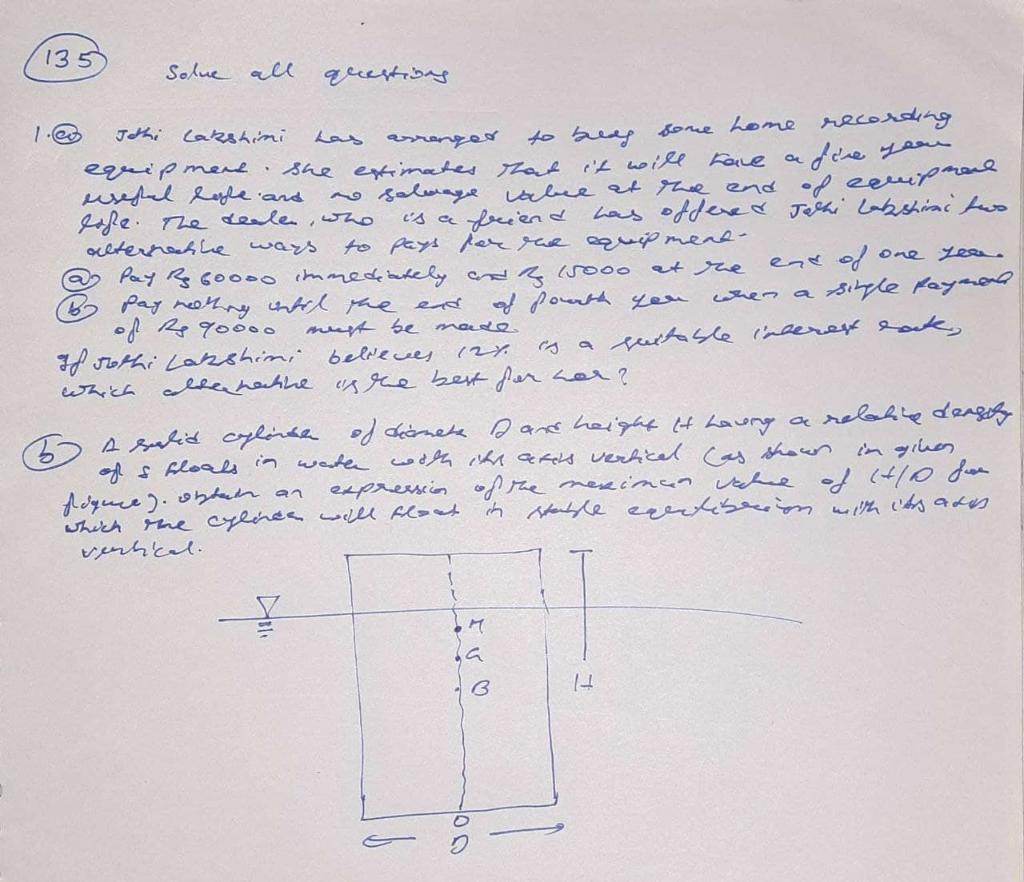 135
Solve all questions
1.a Jothi Lakshimi has arranged to buy some home recording
equipment. She estimates that it will have a five year
useful life and no salvage value at the end of equipment
life. The dealer, who is a friend has offered Jothi Lakshimi two
alternative ways to pay for the equipment.
a Pay Rs 60000 immediately and Rs 15000 at the end of one year
b Pay nothing until the end of fourth year when a single payment
of Rs 90000 must be made
If Jothi Lakshimi believes 12% is a suitable interest rate,
which alternative is the best for her?
b A solid cylinder of diameter D and height H having a relative density
of s floats in water with its axis vertical (as shown in given
figure). obtain an expression of the maximum value of (H/D for
which the cylinder will float in stable equilibrium with its axis
vertical.
M
G
B
H
O
D